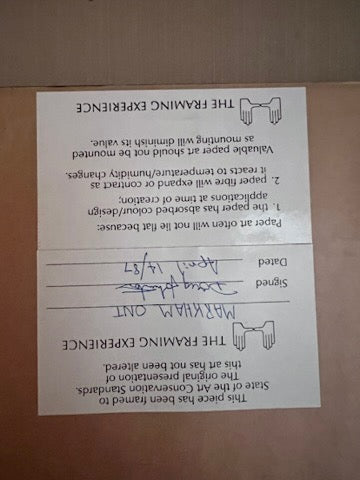 This piece has been framed to
State of the Art Conservation Standards.
The original presentation of
this art has not been altered.
THE FRAMING EXPERIENCE
MARKHAM ONT
Signed
Dated April 14/87
Paper art will often not lie flat because:
1. the paper has absorbed colour/design
applications at time of creation;
2. paper fibre will expand or contract as
it reacts to temperature/humidity changes.
Valuable paper art should not be mounted
as mounting will diminish its value.
THE FRAMING EXPERIENCE